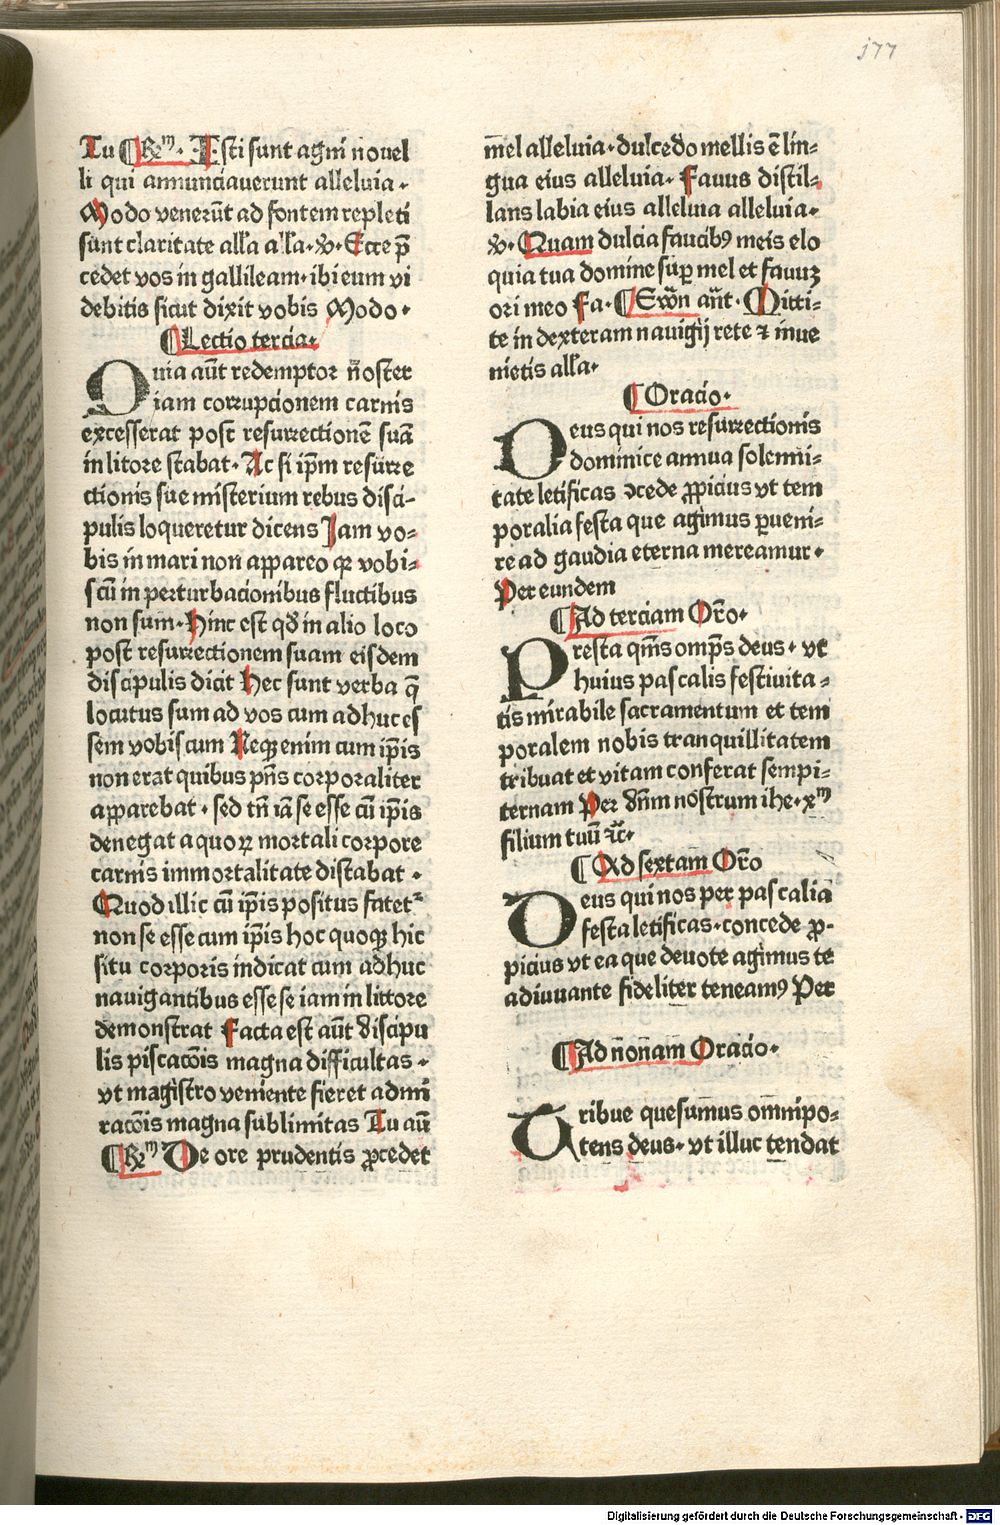 177
Tu ¶ R̃m̃· Isti sunt agni novel
li qui annunciaverunt alleluia·
Modo venerũt ad fontem repleti
sunt claritate alľa alľa·℣· Ecce p̄
cedet vos in gallileam·ibi eum vi
debitis sicut dixit vobis Modo·
¶ Lectio tercia·
Quia aũt redemptor n̄oster
iam corrupcionem carnis
excesserat post resurrectionē suā
in litore stabat·Ac si ip̄m resurre
ctionis sue misterium rebus disci-
pulis loqueretur dicens Iam vo-
bis in mari non appareo qꝛ vobi-
scū in perturbacionibus fluctibus
non sum·Hinc est qd̄ in alio loco
post resurrectionem suam eisdem
discipulis dicit Hec sunt verba q̄
locutus sum ad vos cum adhuc es
sem vobiscum Neqꝫ enim cum ip̄is
non erat quibus pn̄s corporaliter
apparebat·sed tn̄ iā se esse cū ip̄is
denegat a quoꝝ mortali corpore
carnis immortalitate distabat·
Quod illic cū ip̄is positus fatetᷣ
non se esse cum ip̄is hoc quoqꝫ hic
situ corporis indicat cum adhuc
navigantibus esse se iam in littore
demonstrat Facta est aūt discipu
lis piscacōis magna difficultas·
vt magistro veniente fieret admi
racōis magna sublimitas Tu aū
¶ R̃m̃ De ore prudentis ꝓcedet
m̄el alleluia·dulcedo mellis ē lin-
gua eius alleluia·Favus distil-
lans labia eius alleluia alleluia·
℣·Quam dulcia faucibꝰ meis elo
quia tua domine sup̱ mel et favuꝫ
ori meo Fa·¶ Ewn̄ an̄t·Mitti-
te in dexteram navigij rete ⁊ inve
nietis alľa·
¶ Oracio·
Deus qui nos resurrectionis
dominice annua solemni-
tate letificas ↄcede ꝓpicius vt tem
poralia festa que agimus ꝑveni-
re ad gaudia eterna mereamur·
Per eundem
¶ Ad terciam Or̄o·
Presta qm̄s omp̄s deus·vt
huius pascalis festivita-
tis mirabile sacramentum et tem
poralem nobis tranquillitatem
tribuat et vitam conferat sempi-
ternam Per dn̄m nostrum ihe·xm̄
filium tuū ⁊c̄·
¶ Ad sextam Or̄o
Deus qui nos per pascalia
festa letificas·concede ꝓ-
picius vt ea que devote agimus te
adiuvante fideliter teneamꝰ Per
¶ Ad nonam Oracio·
Tribue quesumus omnipo-
tens deus·vt illuc tendat
Digitalisierung gefördert durch die Deutsche Forschungsgemeinschaft - DFG